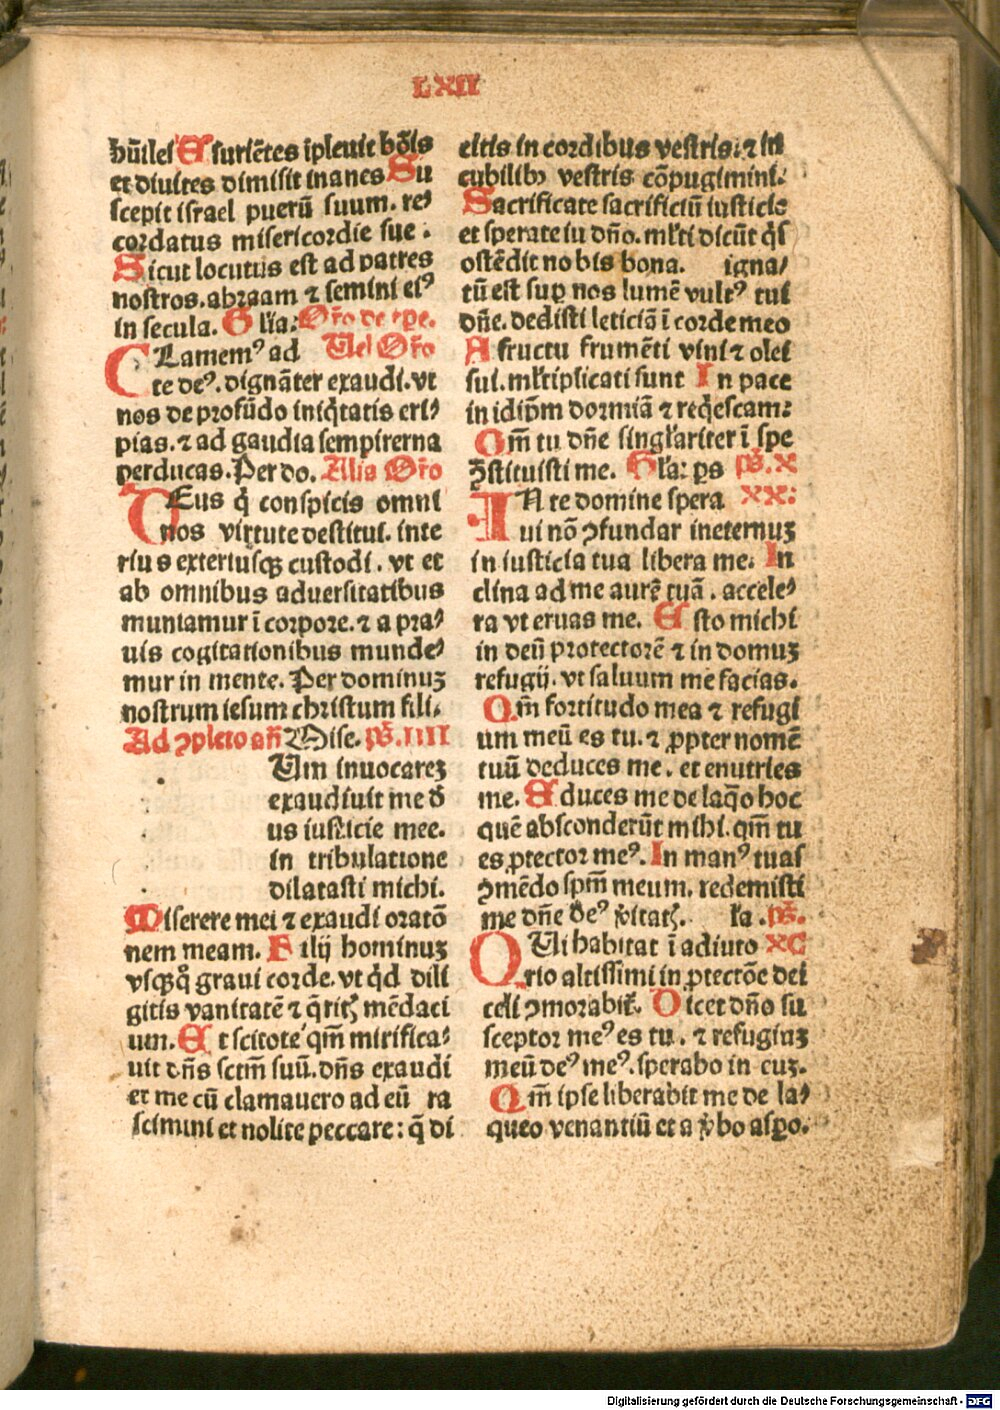 LXII
hūiles Esuriētes īpleuit bōis
et diuites dimisit inanes Su
scepit israel puerū suum. re⸗
cordatus misericordie sue.
Sicut locutus est ad patres
nostros. abraam ⁊ semini eiꝰ
in secula. Glīa: Oro de tpe.
Clamemꝰ ad Uel Oro
te deꝰ. dignāter exaudi. vt
nos de profūdo iniq̄tatis eri⸗
pias. ⁊ ad gaudia sempirerna
perducas. Per do. Alia Oro
DEus q̄ conspicis omni
nos virtute destitui. inte
rius exteriusqꝫ custodi. vt et
ab omnibus aduersitatibus
muniamur ī corpore. ⁊ a pra⸗
uis cogitationibus munde⸗
mur in mente. Per dominuꝫ
nostrum iesum christum fili.
Ad ꝯpleto añ Mise. ps. IIII
Um inuocareꝫ
exaudiuit me d̄
us iusticie mee.
in tribulatione
dilatasti michi.
Miserere mei ⁊ exaudi oratō
nem meam. Filij hominuꝫ
vsqꝫq̄ graui corde. vt qd dili
gitis vanitatē ⁊ q̄ritꝭ mēdaci
um. Et scitote qm̄ mirifica⸗
uit dn̄s sctm̄ suū. dn̄s exaudi
et me cū clamauero ad eū ra
scimini et nolite peccare: q̄ di
citis in cordibus vestris: ⁊ in
cubilibꝫ vestris cōpugimini.
Sacrificate sacrificiū iusticie
et sperate iu dn̄o. ml̄ti dicūt q̄s
ostēdit nobis bona. igna⸗
tū est suꝑ nos lumē vultꝰ tui
dn̄e. dedisti leticiā ī corde meo
A fructu frumēti vini ⁊ olei
sui. ml̄tiplicati sunt In pace
in idip̄m dormiā ⁊ reqēscam:
Qm̄ tu dn̄e singl̄ariter ī spe
ꝯstituisti me. Gl̄a: ps ps. X
IN te domine spera XX:
ui nō ꝯfundar ineternuꝫ
in iusticia tua libera me. In
clina ad me aurē tuā. accele⸗
ra vt eruas me. Esto michi
in deū protectorē ⁊ in domuꝫ
refugij. vt saluum me facias.
Qm̄ fortitudo mea ⁊ refugi
um meū es tu. ⁊ ꝓpter nomē
tuū deduces me. et enutries
me. Educes me de laq̄o hoc
quē absconderūt mihi. qm̄ tu
es ꝓtector meꝰ. In manꝰ tuas
ꝯmēdo spm̄ meum. redemisti
me dn̄e deꝰ v̄itatꝭ. l̄a. ps.
QUi habitat ī adiuto XC
rio altissimi in ꝓtectōe dei
celi ꝯmorabit̄. Dicet dn̄o su
sceptor meꝰ es tu. ⁊ refugiuꝫ
meū deꝰ meꝰ. sperabo in euꝫ.
Qm̄ ipse liberabit me de la⸗
queo venantiū et a v̄bo asꝑo.
Digitalisierung gefördert durch die Deutsche Forschungsgemeinschaft - DFG